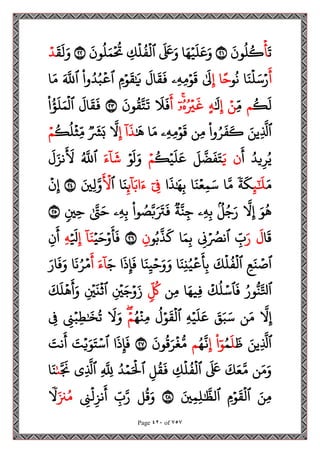 تَأۡكُلُونَ ٢١ وَعَلَيۡهَا وَعَلَى ٱلۡفُلۡكِ تُحۡمَلُونَ ٢٢ وَلَقَدۡ
أَرۡسَلۡنَا نُوحًا إِلَىٰ قَوۡمِهِۦ فَقَالَ يَٰقَوۡمِ ٱعۡبُدُواْ ٱللَّهَ مَا
لَكُم مِّنۡ إِلَٰهٍ غَيۡرُهُۥٓۚ أَفَلَا تَتَّقُونَ ٢٣ فَقَالَ ٱلۡمَلَؤُاْ
ٱلَّذِينَ كَفَرُواْ مِن قَوۡمِهِۦ مَا هَٰذَآ إِلَّا بَشَرٞ مِّثۡلُكُمۡ
يُرِيدُ أَن يَتَفَضَّلَ عَلَيۡكُمۡ وَلَوۡ شَآءَ ٱللَّهُ لَأَنزَلَ
مَلَٰٓئِكَةٗ مَّا سَمِعۡنَا بِهَٰذَا فِيٓ ءَابَآئِنَا ٱلۡأَوَّلِينَ ٢٤ إِنۡ
هُوَ إِلَّا رَجُلُۢ بِهِۦ جِنَّةٞ فَتَرَبَّصُواْ بِهِۦ حَتَّىٰ حِينٖ ٢٥
قَالَ رَبِّ ٱنصُرۡنِي بِمَا كَذَّبُونِ ٢٦ فَأَوۡحَيۡنَآ إِلَيۡهِ أَنِ
ٱصۡنَعِ ٱلۡفُلۡكَ بِأَعۡيُنِنَا وَوَحۡيِنَا فَإِذَا جَآءَ أَمۡرُنَا وَفَارَ
ٱلتَّنُّورُ فَٱسۡلُكۡ فِيهَا مِن كُلّٖ زَوۡجَيۡنِ ٱثۡنَيۡنِ وَأَهۡلَكَ
إِلَّا مَن سَبَقَ عَلَيۡهِ ٱلۡقَوۡلُ مِنۡهُمۡۖ وَلَا تُخَٰطِبۡنِي فِي
ٱلَّذِينَ ظَلَمُوٓاْ إِنَّهُم مُّغۡرَقُونَ ٢٧ فَإِذَا ٱسۡتَوَيۡتَ أَنتَ
وَمَن مَّعَكَ عَلَى ٱلۡفُلۡكِ فَقُلِ ٱلۡحَمۡدُ لِلَّهِ ٱلَّذِي نَجَّىٰنَا
مِنَ ٱلۡقَوۡمِ ٱلظَّٰلِمِينَ ٢٨ وَقُل رَّبِّ أَنزِلۡنِي مُنزَلٗا
Page ٤٢٠ of ٧٥٧